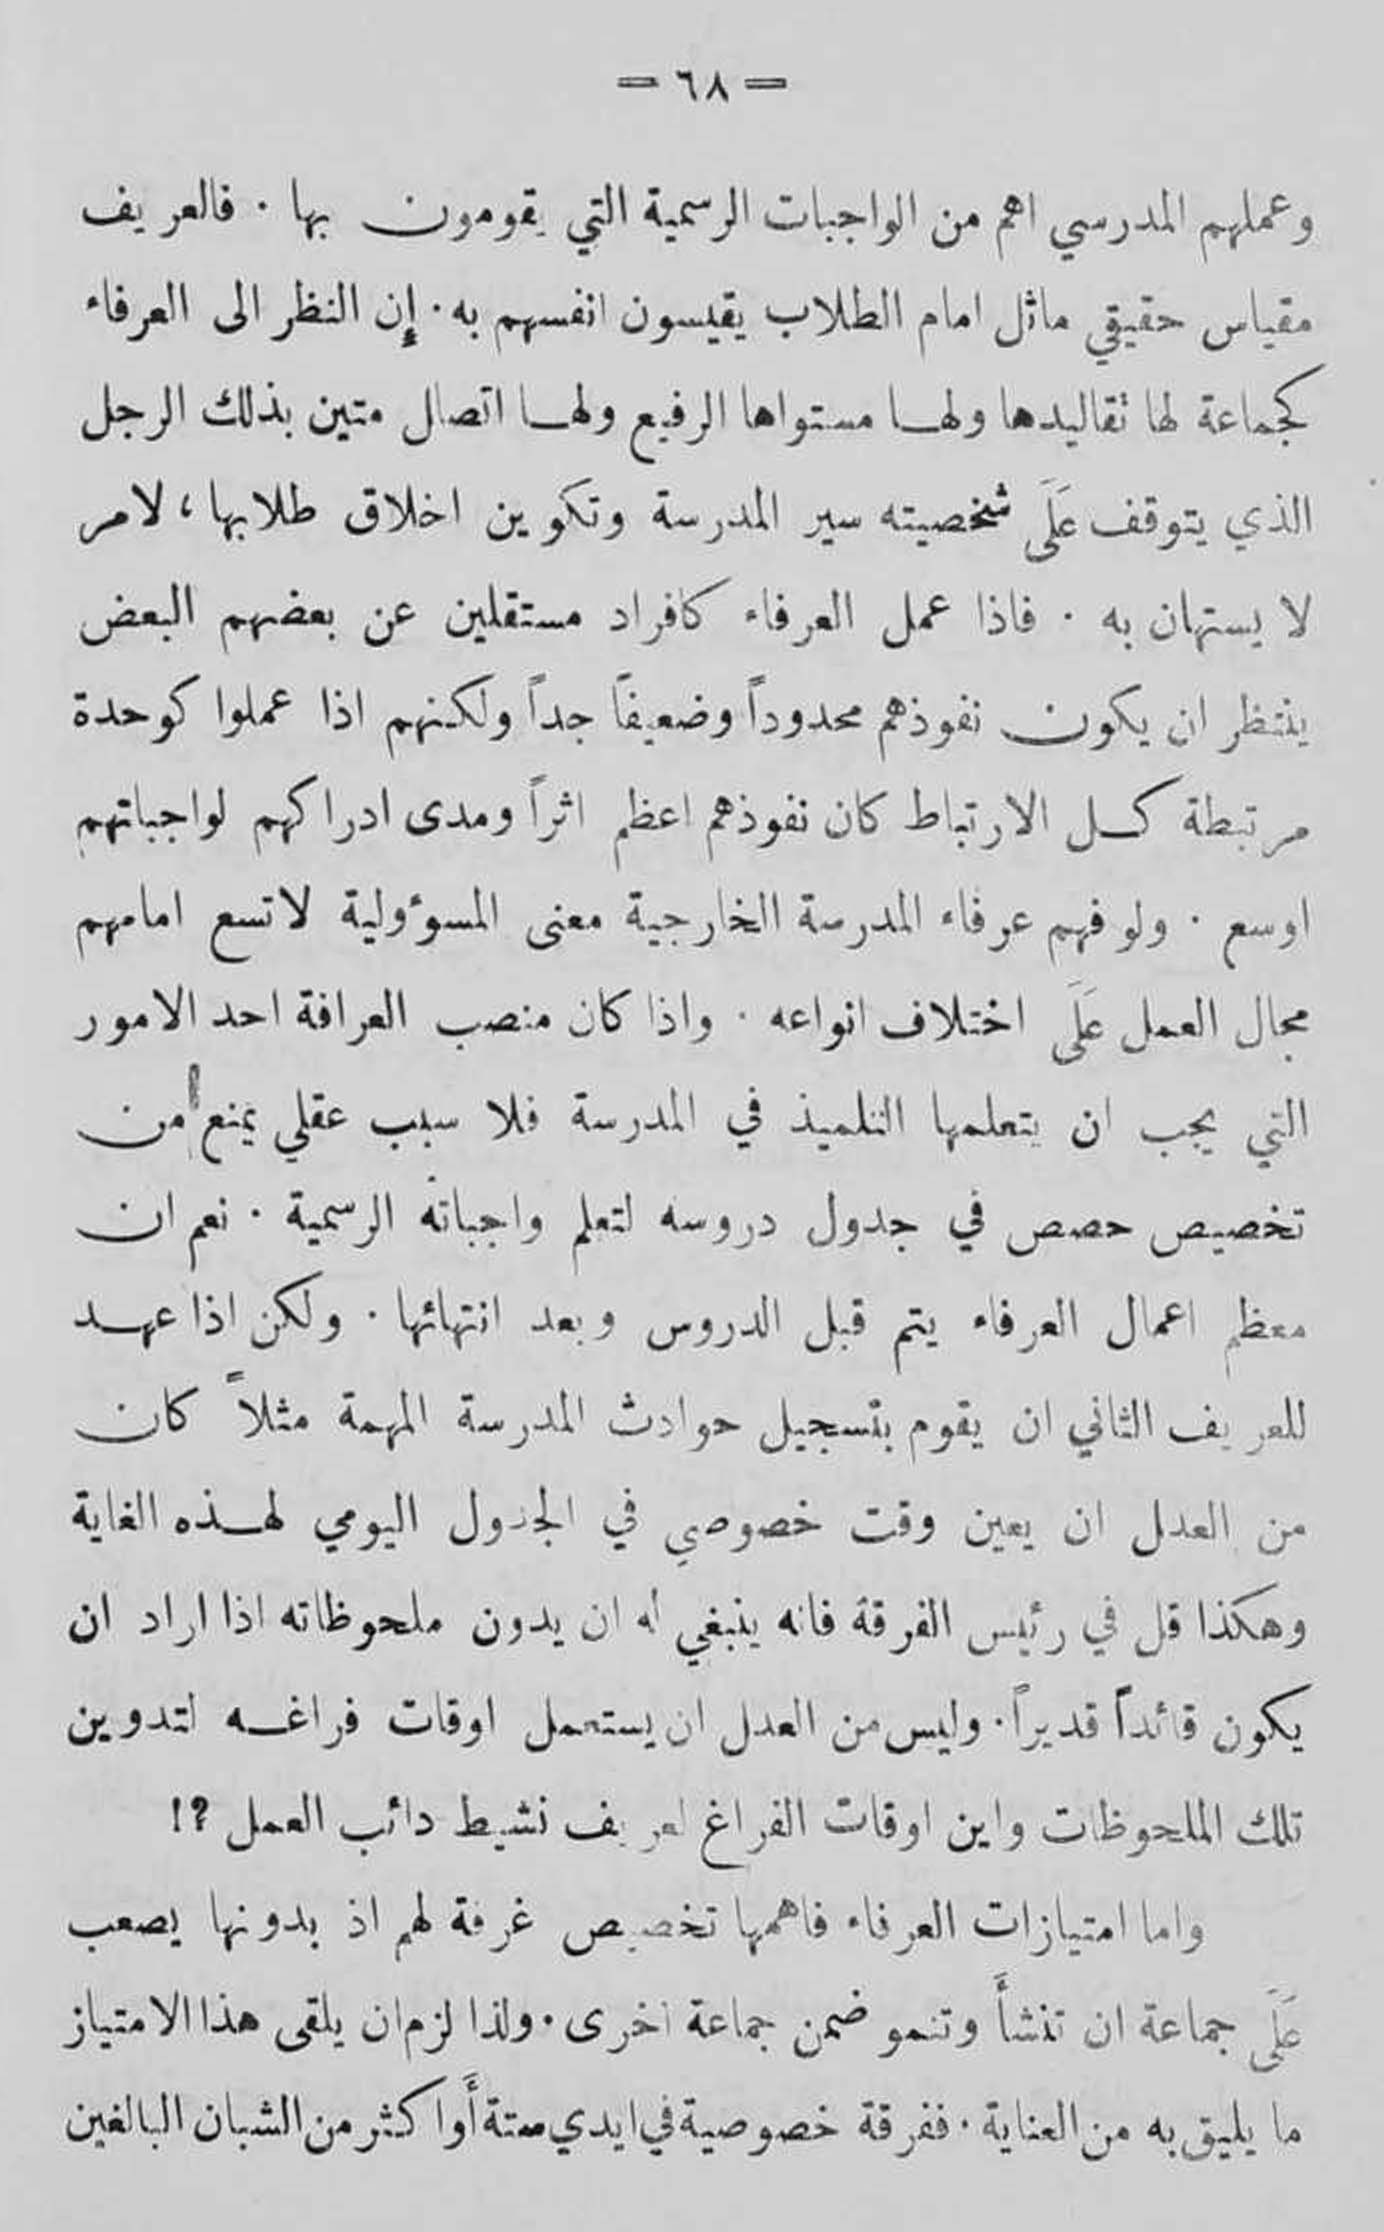 = ٦٨ =
وعملهم المدرسي اهم من الواجبات الرسمية التي يقومون بها . فالعريف
مقياس حقيقي ماثل امام الطلاب يقيسون انفسهم به . إن النظر الى العرفاء
كجماعة لها تقاليدها ولها مستواها الرفيع ولها اتصال متين بذلك الرجل
الذي يتوقف عَلَى شخصيته سير المدرسة وتكوين اخلاق طلابها ، لامر
لا يستهان به . فاذا عمل العرفاء كافراد مستقلين عن بعضهم البعض
ينتظر ان يكون نفوذهم محدوداً وضعيفاً جداً ولكنهم اذا عملوا كوحدة
مرتبطة كل الارتباط كان نفوذهم اعظم اثراً ومدى ادراكهم لواجباتهم
اوسع . ولو فهم عرفاء المدرسة الخارجية معنى المسوءولية لاتسع امامهم
مجال العمل عَلَى اختلاف انواعه . واذا كان منصب العرافة احد الامور
التي يجب ان يتعلمها التلميذ في المدرسة فلا سبب عقلي يمنع من
تخصيص حصص في جدول دروسه لتعلم واجباته الرسمية . نعم ان
معظم اعمال العرفاء يتم قبل الدروس وبعد انتهائها . ولكن اذا عهد
للعريف الثاني ان يقوم بتسجيل حوادث المدرسة المهمة مثلاً كان
من العدل ان يعين وقت خصوصي في الجدول اليومي لهذه الغاية
وهكذا قل في رئيس الفرقة فانه ينبغي له ان يدون ملحوظاته اذا اراد ان
يكون قائداً قديراً . وليس من العدل ان يستعمل اوقات فراغه لتدوين
تلك الملحوظات واين اوقات الفراغ لعريف نشيط دائب العمل ؟!
واما امتيازات العرفاء فاهمها تخصيص غرفة لهم اذ بدونها يصعب
عَلَى جماعة ان تنشأَ وتنمو ضمن جماعة اخرى . ولذا لزم ان يلقى هذا الامتياز
ما يليق به من العناية . ففرقة خصوصية في ايدي ستة أَو اكثر من الشبان البالغين